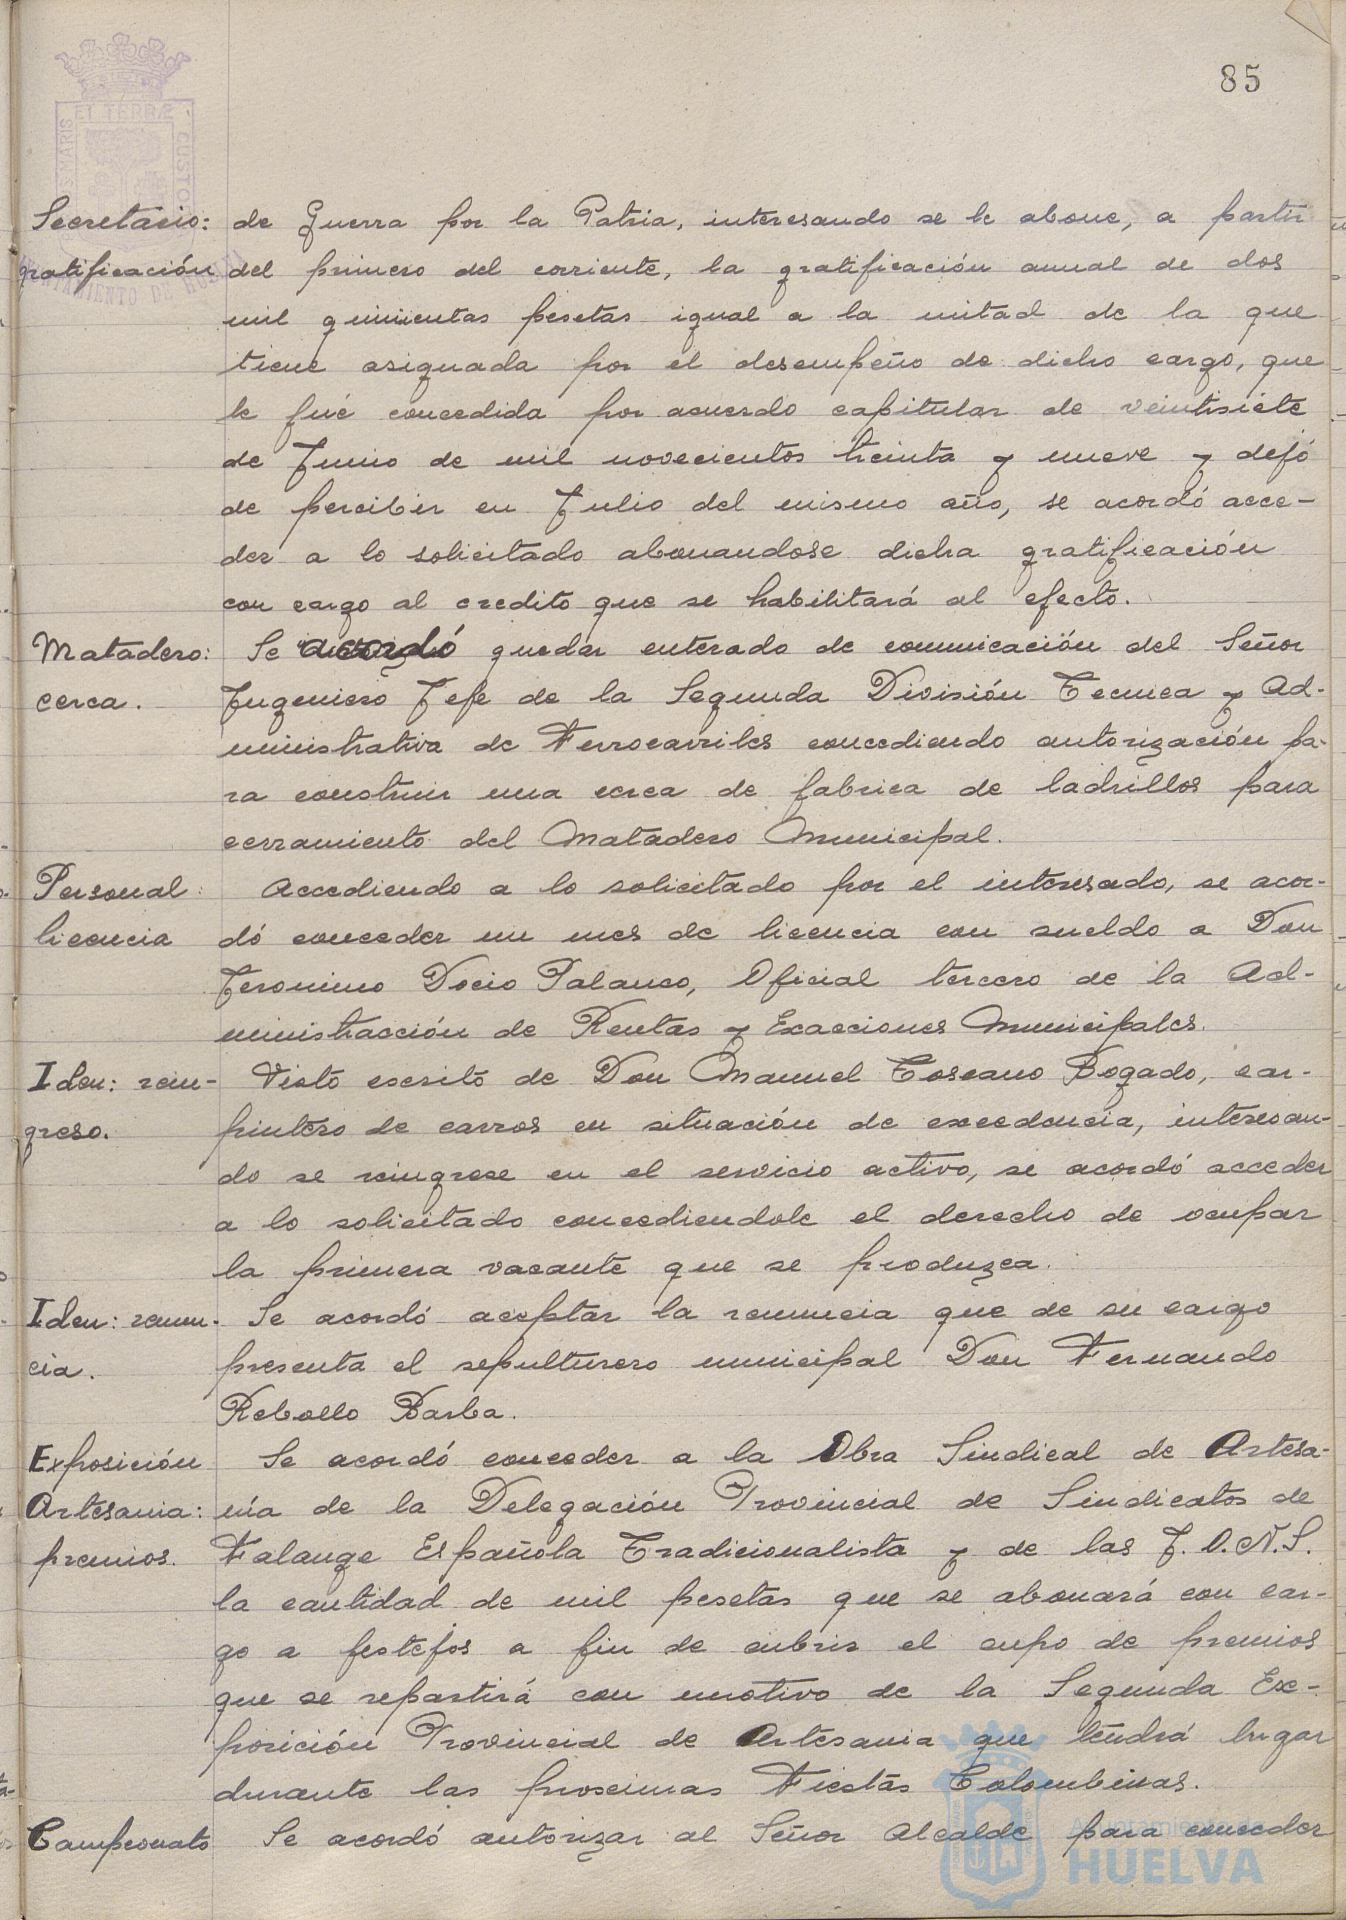 85
ET TERRÆ
CUSTO
S MARIS
NTAMIENTO DE HUEL
Secretario: de Guerra por la Patria, interesando se le abone, a partir
gratificación del primero del corriente, la gratificación anual de dos
mil quinientas pesetas igual a la mitad de la que
tiene asignada por el desempeño de dicho cargo, que
le fué concedida por acuerdo capitular de veintisiete
de Junio de mil novecientos treinta y nueve y dejó
de percibir en Julio del mismo año, se acordó acce-
der a lo solicitado abonandose dicha gratificación
con cargo al credito que se habilitará al efecto.
Matadero: Se acordó quedar enterado de comunicación del Señor
cerca. Ingeniero Jefe de la Segunda División Tecnica y Ad-
ministrativa de Ferrocarriles concediendo autorización pa-
ra construir una cerca de fabrica de ladrillos para
cerramiento del Matadero Municipal.
Personal: Accediendo a lo solicitado por el interesado, se acor-
licencia dó conceder un mes de licencia con sueldo a Don
Jeronimo Docio Palanco, Oficial tercero de la Ad-
ministracción de Rentas y Exacciones Municipales.
Iden: rein- Visto escrito de Don Manuel Toscano Bogado, car-
greso. pintero de carros en situación de excedencia, interesan-
do se reingrese en el servicio activo, se acordó acceder
a lo solicitado concediendole el derecho de ocupar
la primera vacante que se produzca.
Iden: renun- Se acordó aceptar la renuncia que de su cargo
cia. presenta el sepulturero municipal Don Fernando
Rebollo Barba.
Exposición Se acordó conceder a la Obra Sindical de Artesa-
Artesania: nía de la Delegación Provincial de Sindicatos de
premios. Falange Española Tradicionalista y de las J.O.N.S.
la cantidad de mil pesetas que se abonará con car-
go a festejos a fin de cubrir el cupo de premios
que se repartirá con motivo de la Segunda Ex-
posición Provincial de Artesania que tendrá lugar
durante las proximas Fiestas Colombinas.
Campeonato Se acordó autorizar al Señor Alcalde para conceder
Ayuntamiento de
HUELVA